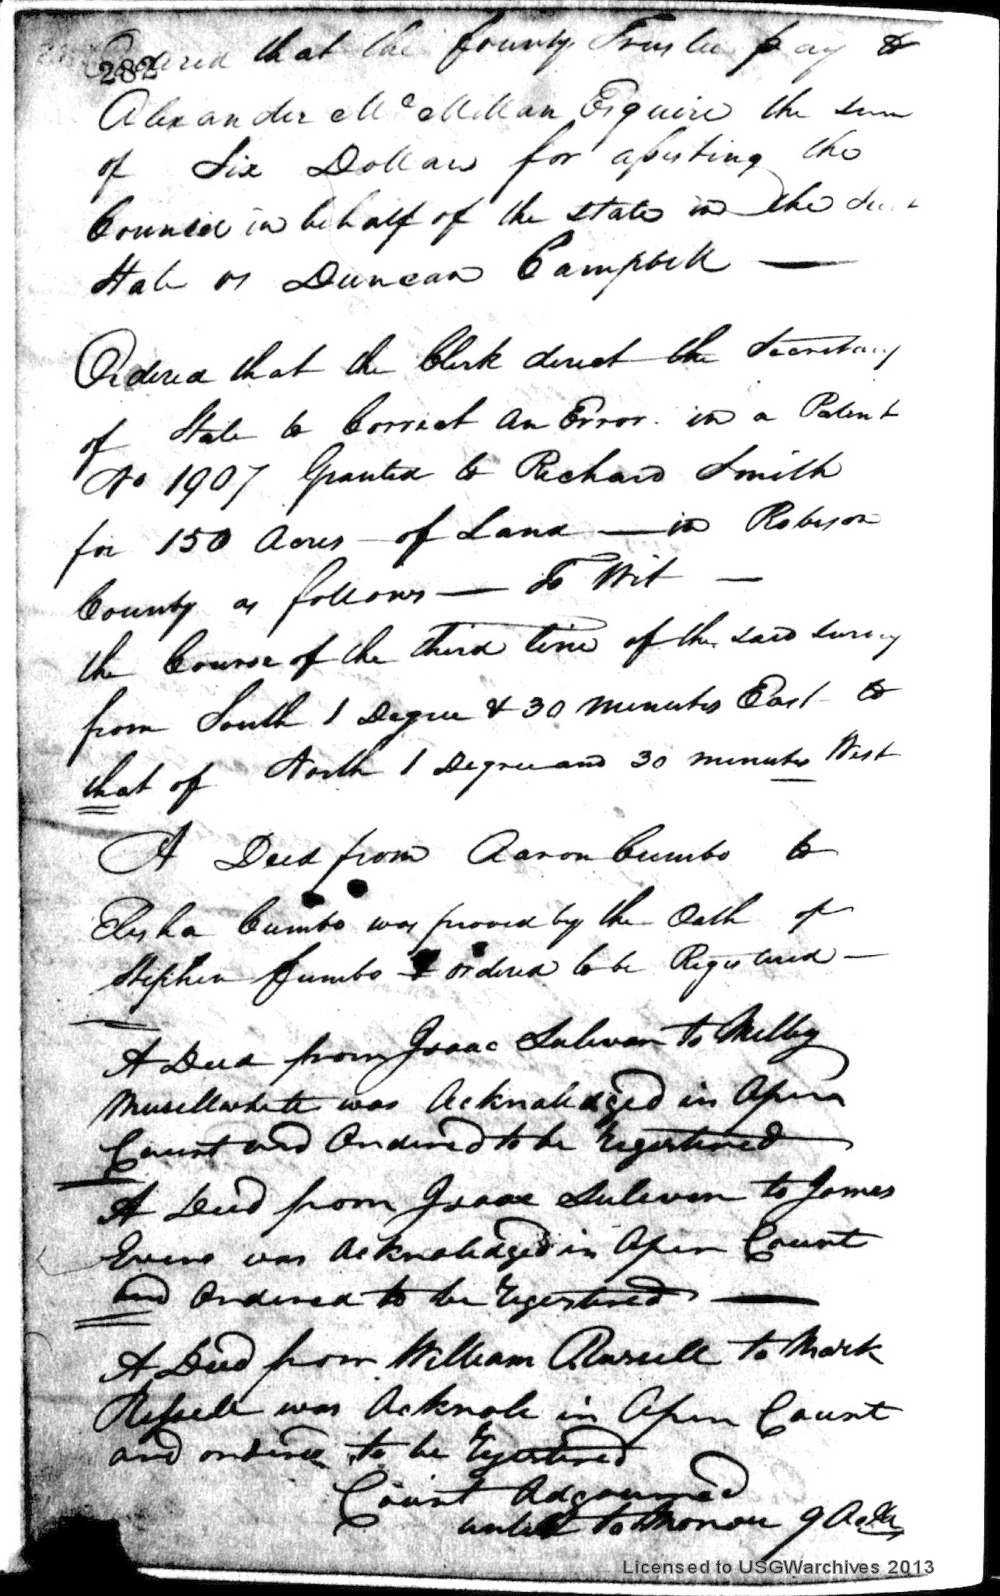 282
Ordered that the County Trustee pay to
Alexander McMillan Esquire the sum
of Six Dollars for assisting the
Council in behalf of the state in the suit
State vs Duncan Campbell —
Ordered that the Clerk direct the Secretary
of State to Correct an Error in a Patent
No 1907 Granted to Richard Smith
for 150 Acres of Land — in Robeson
County as follows — To Wit —
the Course of the third line of the said survey
from South 1 Degree & 30 minutes East to
that of North 1 Degree and 30 minutes West
A Deed from Aaron Cumbo to
Elisha Cumbo was proved by the Oath of
Stephen Cumbo & ordered to be Registered —
A Deed from Isaac Sulivan to Milby
Musellwhite was Acknoledged in Apen
Court and Ordered to be Regestered
A Deed from Isaac Sulivan to James
Evens was Acknoledged in Apen Court
and Ordered to be Regestered —
A Deed from William Russell to Mark
Russell was Acknole in Apen Court
and ordered to be Regestered
Court Adgourned
untell to Morrow 9 Aclk
Licensed to USGWarchives 2013